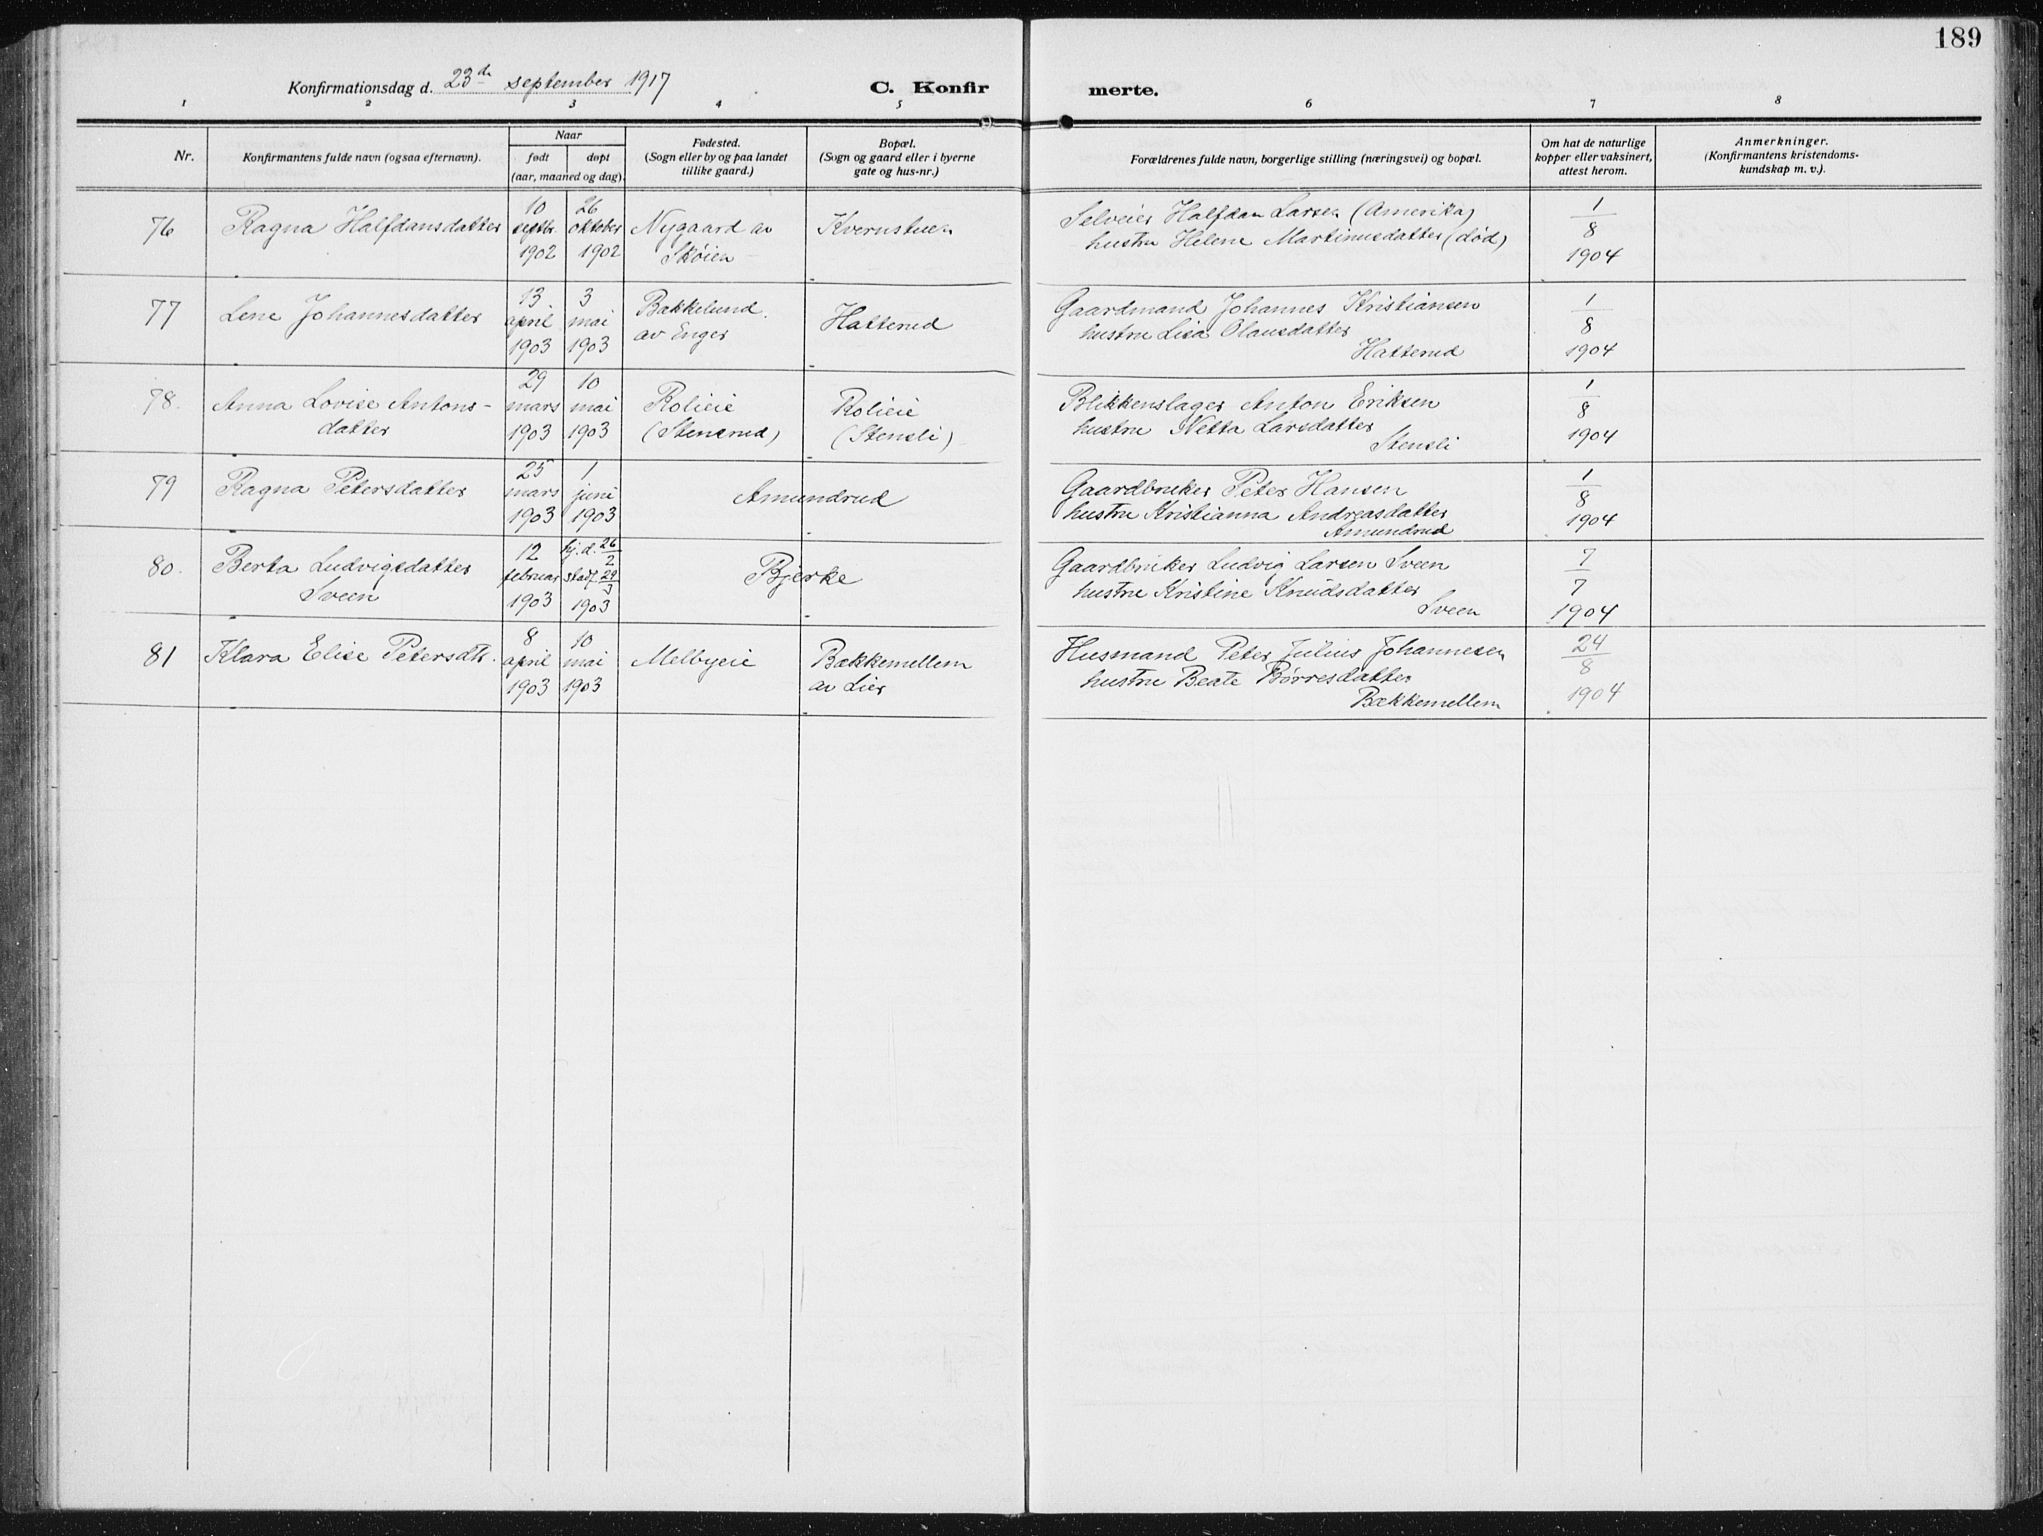 189
Konfirmationsdag d. 23de september 1917
C. Konfirmerte.
1 2 3 4 5 6 7 8
Nr.
Konfirmantens fulde navn (ogsaa efternavn).
Naar
født døpt
(aar, maaned og dag).
Fødested.
(Sogn eller by og paa landet
tillike gaard.)
Bopæl.
(Sogn og gaard eller i byerne
gate og hus-nr.)
Forældrenes fulde navn, borgerlige stilling (næringsvei) og bopæl.
Om hat de naturlige
kopper eller vaksinert,
attest herom.
Anmerkninger.
(Konfirmantens kristendoms-
kundskap m. v.).
76
Ragna Halfdansdatter
10
septbr.
1902
26
oktober
1902
Nygaard av
Skøien
Kvernstuen
Selveier Halfdan Larsen (Amerika)
hustru Helene Martinusdatter (død)
1/8
1904
77
Lene Johannesdatter
13
april
1903
3
mai
1903
Bakkelund
av Enger
Hatterud
Gaardmand Johannes Kristiansen
hustru Lisa Olausdatter
Hatterud
1/8
1904
78.
Anna Lovise Antons-
datter
29
mars
1903
10
mai
1903
Rolieie
(Stensrud)
Rolieie
(Stensli)
Blikkenslager Anton Eriksen
hustru Netta Larsdatter
Stensli
1/8
1904
79
Ragna Petersdatter
25
mars
1903
1
juni
1903
Amundrud
Gaardbruker Peter Hansen
hustru Kristianna Andreasdatter
Amundrud
1/8
1904
80.
Berta Ludvigsdatter
Sveen
12
februar
1903
hj.d. 26/2
stadf. 29/3
1903
Bjerke
Gaardbruker Ludvig Larsen Sveen
hustru Kristine Knudsdatter
Sveen
7/7
1904
81
Klara Elise Petersdtr.
8
april
1903
10
mai
1903
Melbyeie
Bækkemellem
av Lier
Husmand Peter Julius Johannesen
hustru Beate Børresdatter
Bækkemellem
24/8
1904